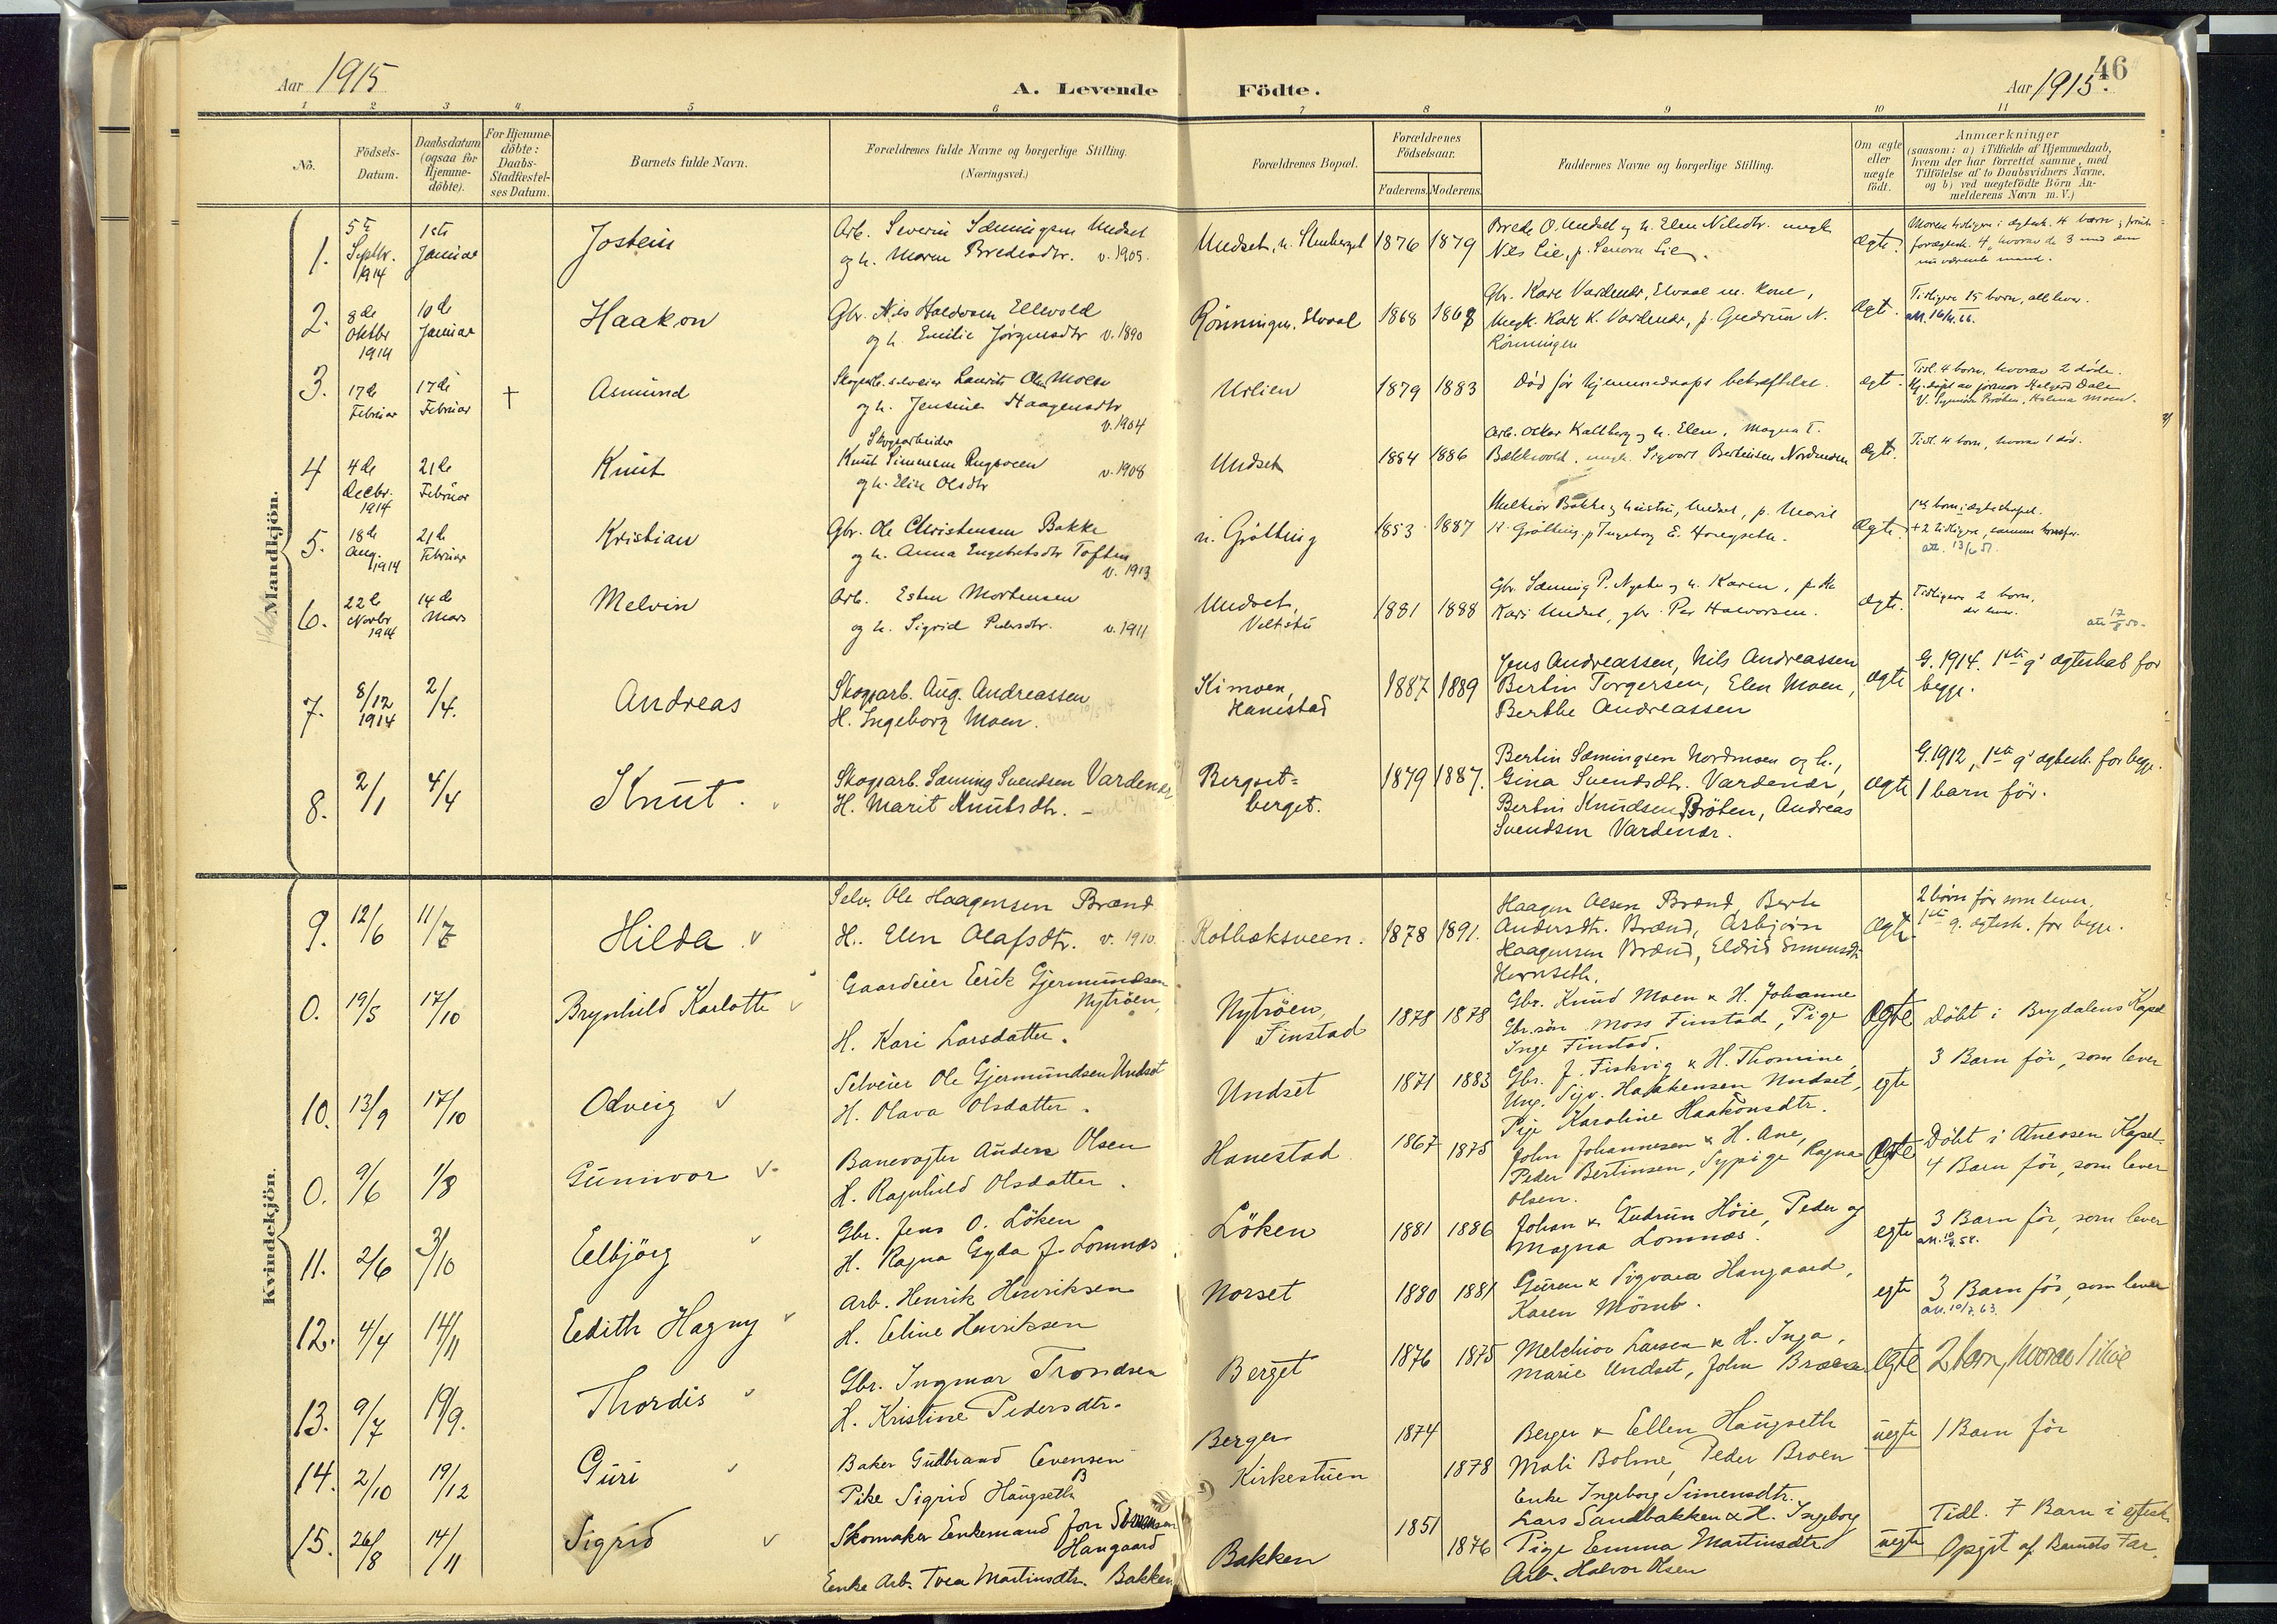 46
Aar 1915
A. Levende Födte.
Aar 1915.
1 2 3 4 5 6 7 8 9 10 11
Nö.
Födsels-Datum.
Daabsdatum (ogsaa for Hjemme-döbte).
For Hjemme-döbte: Daabs-Stadfæstel-ses Datum.
Barnets fulde Navn.
Forældrenes fulde Navne og borgerlige Stilling.
(Næringsvei.)
Forældrenes Bopæl.
Forældrenes Födselsaar.
Faderens. Moderens.
Faddernes Navne og borgerlige Stilling.
Om ægte eller uægte födt.
Anmærkninger
(saasom: a) i Tilfælde af Hjemmedaab,
hvem der har forrettet samme, med
Tilföielse af to Daabsvidners Navne,
og b) ved uegtefödte Börn An-
melderens Navn m. V.)
Mandkjön.
1. 5te Septbr. 1914
1ste Januar
Jostein
Arb. Severin Sæmingsen Undset
og h. Maren Bredesdtr. v. 1905.
Undset, 1876 1879
Brede O. Undset og h. Elen Nilsdtr. ungk.
Nils Lie, p. Lie.
ægte.
2. 8de Oktbr 1914
10de Januar
Haakon
Gbr. Nils Haldorsen Ellevold
og h. Emilie Jörgensdtr v. 1890
Rönningen, Elvaal 1868
Gbr. Kare Vardenær, Elvaal m. Kone,
Ungk. Kare K. Vardenær, p. Gudrun N.
Rönningen
ægt.
Tidligere 15 born, all lever.
3. 17de Februar
17de Februar
+
Asmund
Laurits Moen
og h. Jensine Haagensdtr
v. 1904
Urlien 1879 1883
Död för hjemmedaaps bekræftelse.
ægt.
Tidl. 4 born, hvorav 2 döde.
4 4de Decbr. 1914
21de Februar
Knut
Skogsarbeider
Knut Simensen Rugsveen v. 1908
og h. Elise Olsdtr
Undset 1884 1886
Arb. Oskar Kaltberg og h. Elen, Magna T.
ungk. Sigvart Berthinsen Nordmoen
ægte.
Tidl. 4 born, hvorav 1 död.
5. 18de Aug. 1914
21de Februar
Kristian
Gbr. Ole Christensen Bakke
og h. Anna Engebretsdtr Toften
v. 1913
n. Gröttting 1853 1887
Melkior Bakke og hustru, Undset, p. Marit
H. Grötting, p. Ingeborg E. Horegseth.
ægte.
6. 22de Novbr 1914
14de Mars
Melvin
Arb. Esten Mortensen
og h. Sigrid Pedersdtr. v. 1911
Undset,
Veltstu
1881 1888
Gbr. Sæming P. Nyset og h. Karen, p.
Kari Undset, gbr. Per Halvorsen.
ægte.
Tidligere 2 born,
der lever.
7. 8/12 1914
2/4.
Andreas
Skogsarb. Aug. Andreassen
H. Ingeborg Moen.
Kimoen,
Hanestad
1887 1889
Jens Andreassen, Nils Andreassen
Bertin Torgersen, Elen Moen,
Berthe Andreassen
ægte
G. 1914. 1ste g's ægteskab for
begge.
8. 2/1
4/4
Knut.
Skogsarb. Sæming Svendsen Vardenær
H. Marit Knutsdtr.
Bergset=
berget.
1879 1887.
Bertin Sæmingsen Nordmoen og h.,
Gina Svendsdtr. Vardenær,
Bertin Knudsen Bröten, Andreas
Svendsen Vardenær.
ægte
G. 1912, 1ste g's ægtesk. for begge.
1 barn för.
Kvindekjön.
9. 12/6
11/7
Hilda
Selv. Ole Haagensen Brænd
H. Elen Olafsdtr. v. 1910.
Kotbæksveen. 1878 1891.
Haagen Olsen Brænd, Berte
Andersdtr. Brænd, Asbjörn
Haagensen Brænd, Eldrid Simensdtr
Hornseth.
ægte
2 börn för som lever.
1ste g. ægtesk. for begge.
0. 19/5
17/10
Brynhild Karlotte
Gaardeier Eerik Gjermundsen
Nytröen,
H. Kari Larsdatter.
Nytröen,
Finstad
1878 1878
Gbr. Knud Moen & H. Johanne
Gbr.sön Moss Finstad, Pige
Inge Finstad.
Ægte
Döbt i Brydalens Kapel
10. 13/9
17/10
Odveig
Selveier Ole Gjermundsen Undset
H. Olava Olsdatter.
Undset
1871 1883
Gbr. J. Fiskvig & H. Thomine,
Ung. Sigv. Haakensen Undset,
Pige Karoline Haakonsdtr.
egte
3 Barn för, som lever
0. 9/6
1/8
Gunnvor
Banevogter Anders Olsen
H. Ragnhild Olsdatter.
Hanestad
1867 1875
John Johannesen & H. Ane,
Peder Bertinsen, Sypige Ragna
Olsen.
Ægte
Döbt i Atneosen Kapel.
4 Barn för, som lever
11. 2/6
3/10
Eelbjörg
Gbr. Jens O. Löken
H. Ragna Gyda J. Lomnæs
Löken
1881 1886
Johan & Gudrun Höie, Peder og
Magna Lomnæs.
egte
3 Barn för, som lever
12. 4/4
14/11
Eedith Hagny
Arb. Henrik Henriksen
H. Eeline Henriksen
Norset
1880 1881
Guren & Sigvara Haugaard,
Karen Mömb.
egte
3 Barn för, som lever
13. 9/7
19/9.
Thordis
Gbr. Ingmar Trondsen
H. Kristine Pedersdtr.
Berget
1876 1875
Melchior Larsen & H. Inga,
Marie Undset, John
egte
2 barn, hvorav 1 ilive
14. 2/10
19/12
Guri
Baker Gudbrand Evensen
Pike Sigrid B Haugseth
Berger
Kirkestuen
1874
1878
Berger & Ellen Haugseth
Mali Bolme, Peder Broen
uegte
1 Barn för
15. 26/8
14/11
Sigrid
Skomaker Enkemand Jon Simensen
Haugaard
Enke Arb. Tvea Martinsdtr. Bakken
Bakken
1851
1876
Enke Ingeborg Simensdtr.
Lars Sandbakken & H. Ingeborg
Pige Emma Martinsdtr
Arb. Halvor Olsen
uegte
Tidl. 7 Barn i egtesk.
Opgit af Barnets Far.